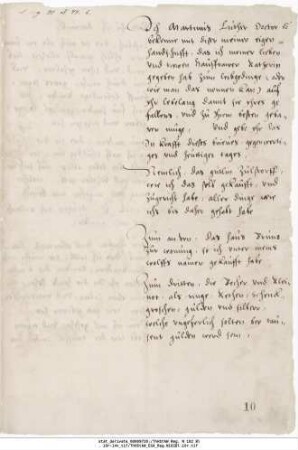 Ich Martinus Luther Doctor
bekenne mit dieser meiner eigen
handschrifft, das ich meiner lieben
und trewen hausfrawen Katherin
gegeben hab zum leibgedinge, oder
wie man das nennen kan) auff
yhr lebelang damit sie yhres ge
fallens, und zu yhrem besten geba
ren muge, und gebe yhr das
in krafft dieses brieves gegenwerti
ges und heutiges tages,
Nemlich, das gutlin Zulsdorff,
wie ich das selb gekaufft, und
zugericht habe, aller dinge wie
ichs bis daher gehabt habe
Zum andern, das haus Bruno
zur wonung, so ich unter meines
Wolffs namen gekaufft habe
Zum dritten, die Becher und Klei
not, als ringe, ketten, schenck
groschen, gulden und silbern,
welche ungeferlich solten bey tau
sent gulden werd sein,
10